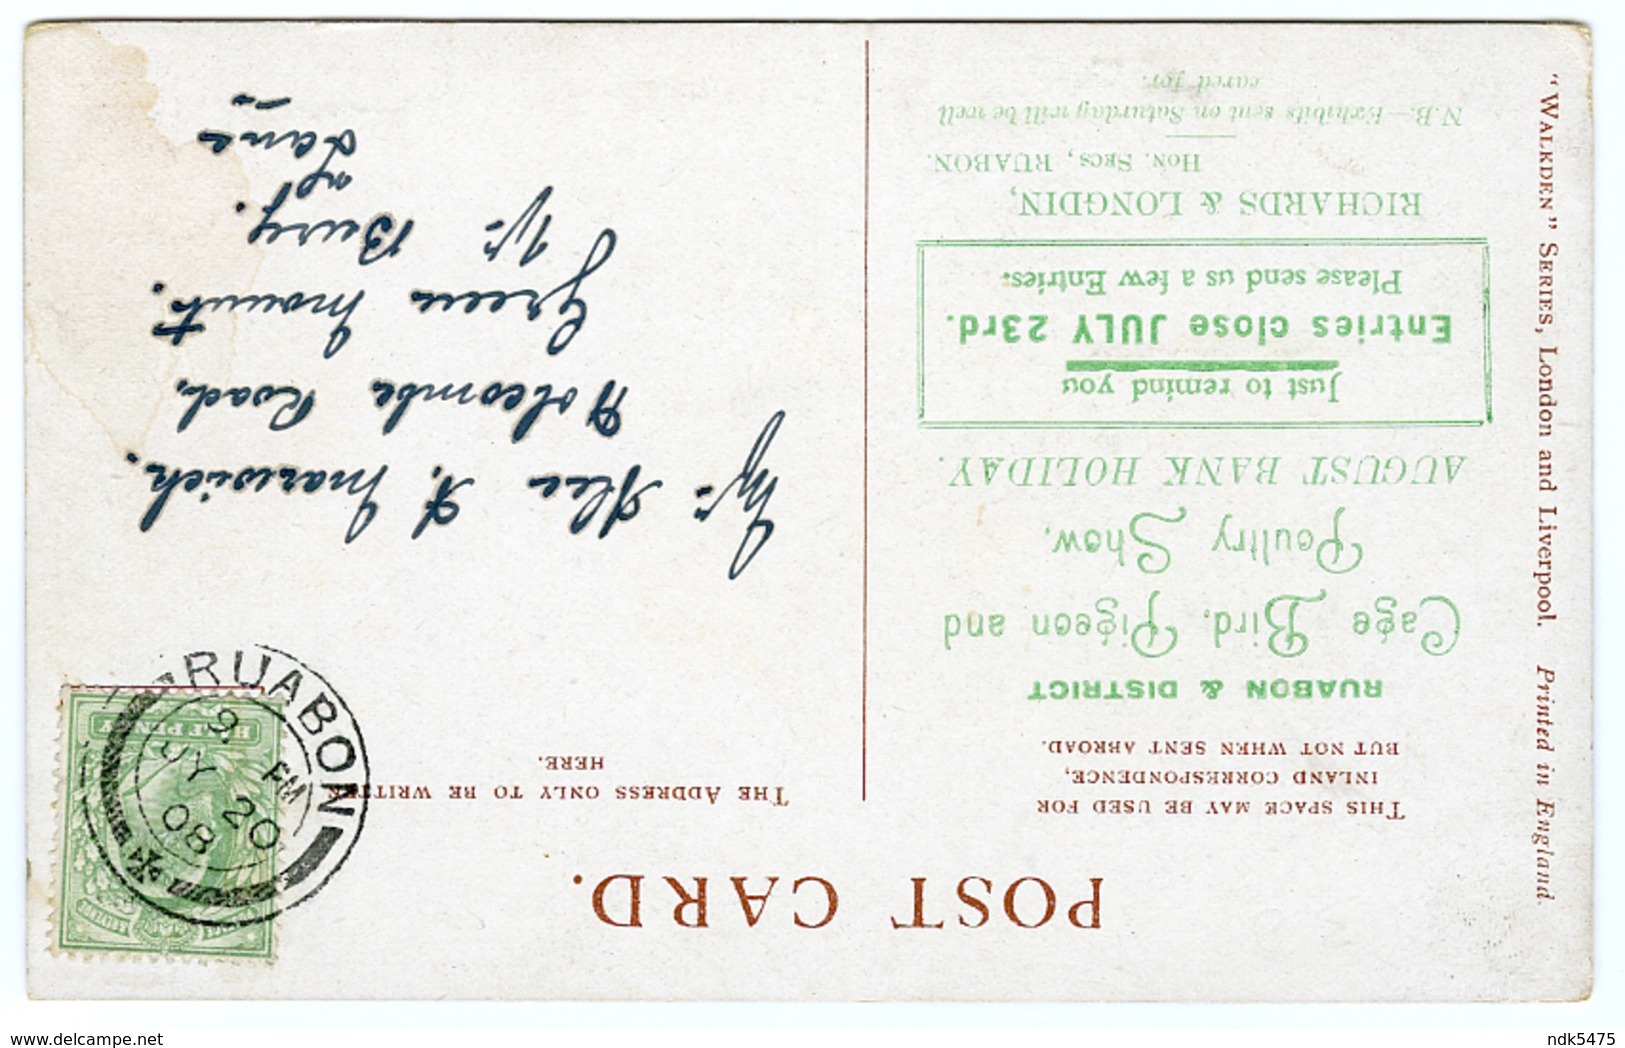 POST CARD.
THIS SPACE MAY BE USED FOR
INLAND CORRESPONDENCE,
BUT NOT WHEN SENT ABROAD.
THE ADDRESS ONLY TO BE WRITTEN
HERE.
RUABON & DISTRICT
Cage Bird, Pigeon and
Poultry Show,
AUGUST BANK HOLIDAY.
Just to remind you
Entries close JULY 23rd.
Please send us a few Entries.
RICHARDS & LONGDIN,
HON. SECS, RUABON.
N.B.—Exhibits sent on Saturday will be well
cared for.
"WALKDEN" SERIES, London and Liverpool. Printed in England
Mr Alec F. Marwich.
Holcombe Road,
Green Mount.
Nr Bury.
Lancs
RUABON
9. PM
JY 20
08
HALFPENNY
POSTAGE
delcampe.net
ndk5475